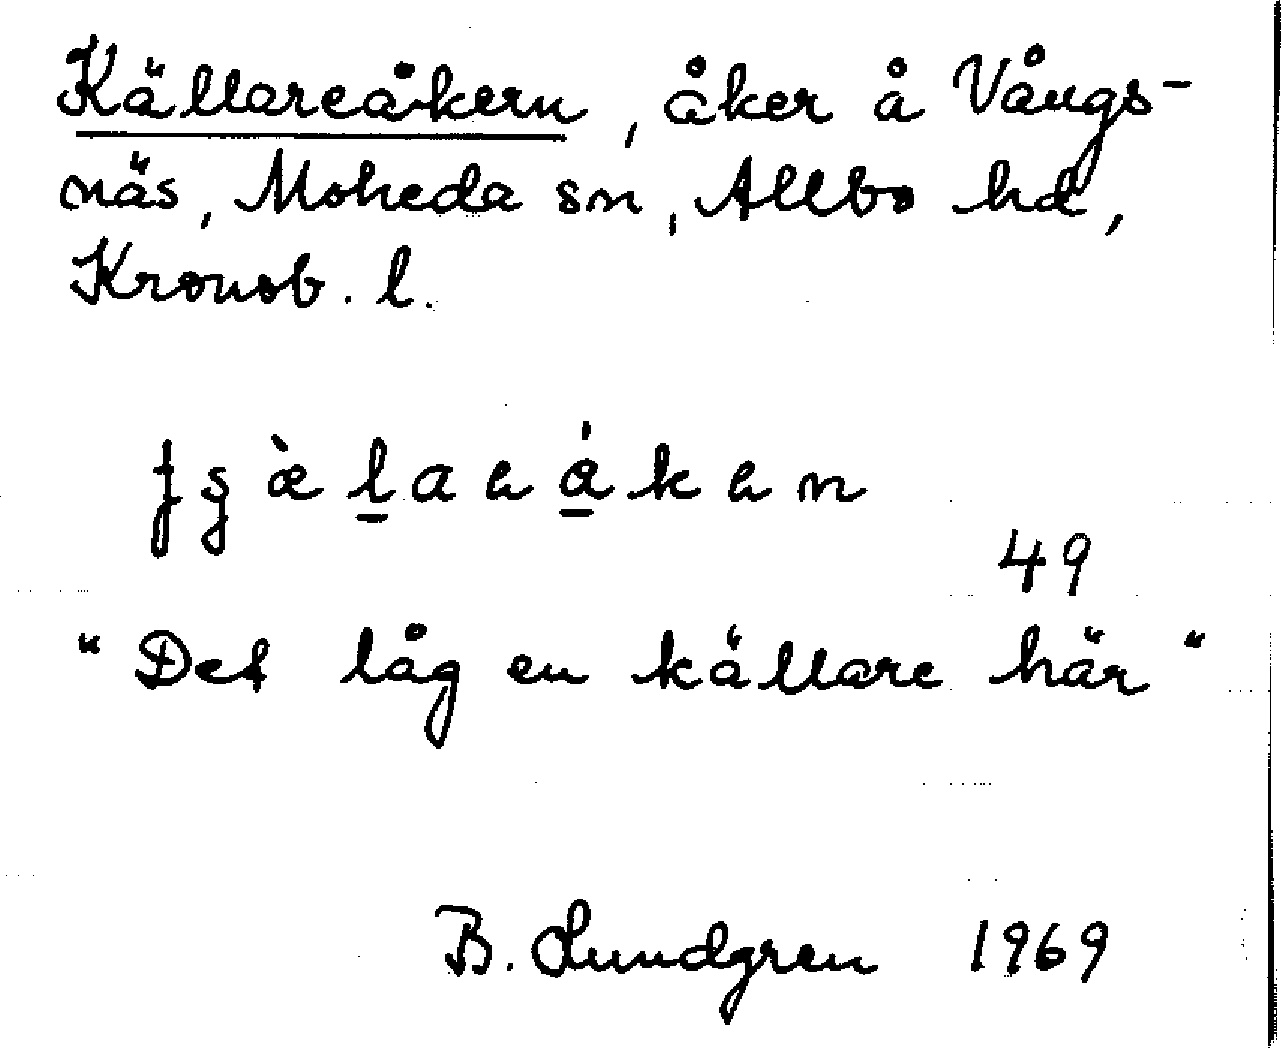 Källareåkern, åker å Vångs-
näs, Moheda sn, Allbo hd,
Kronob. l.
49
"Det låg en källare här"
B. Lundgren 1969